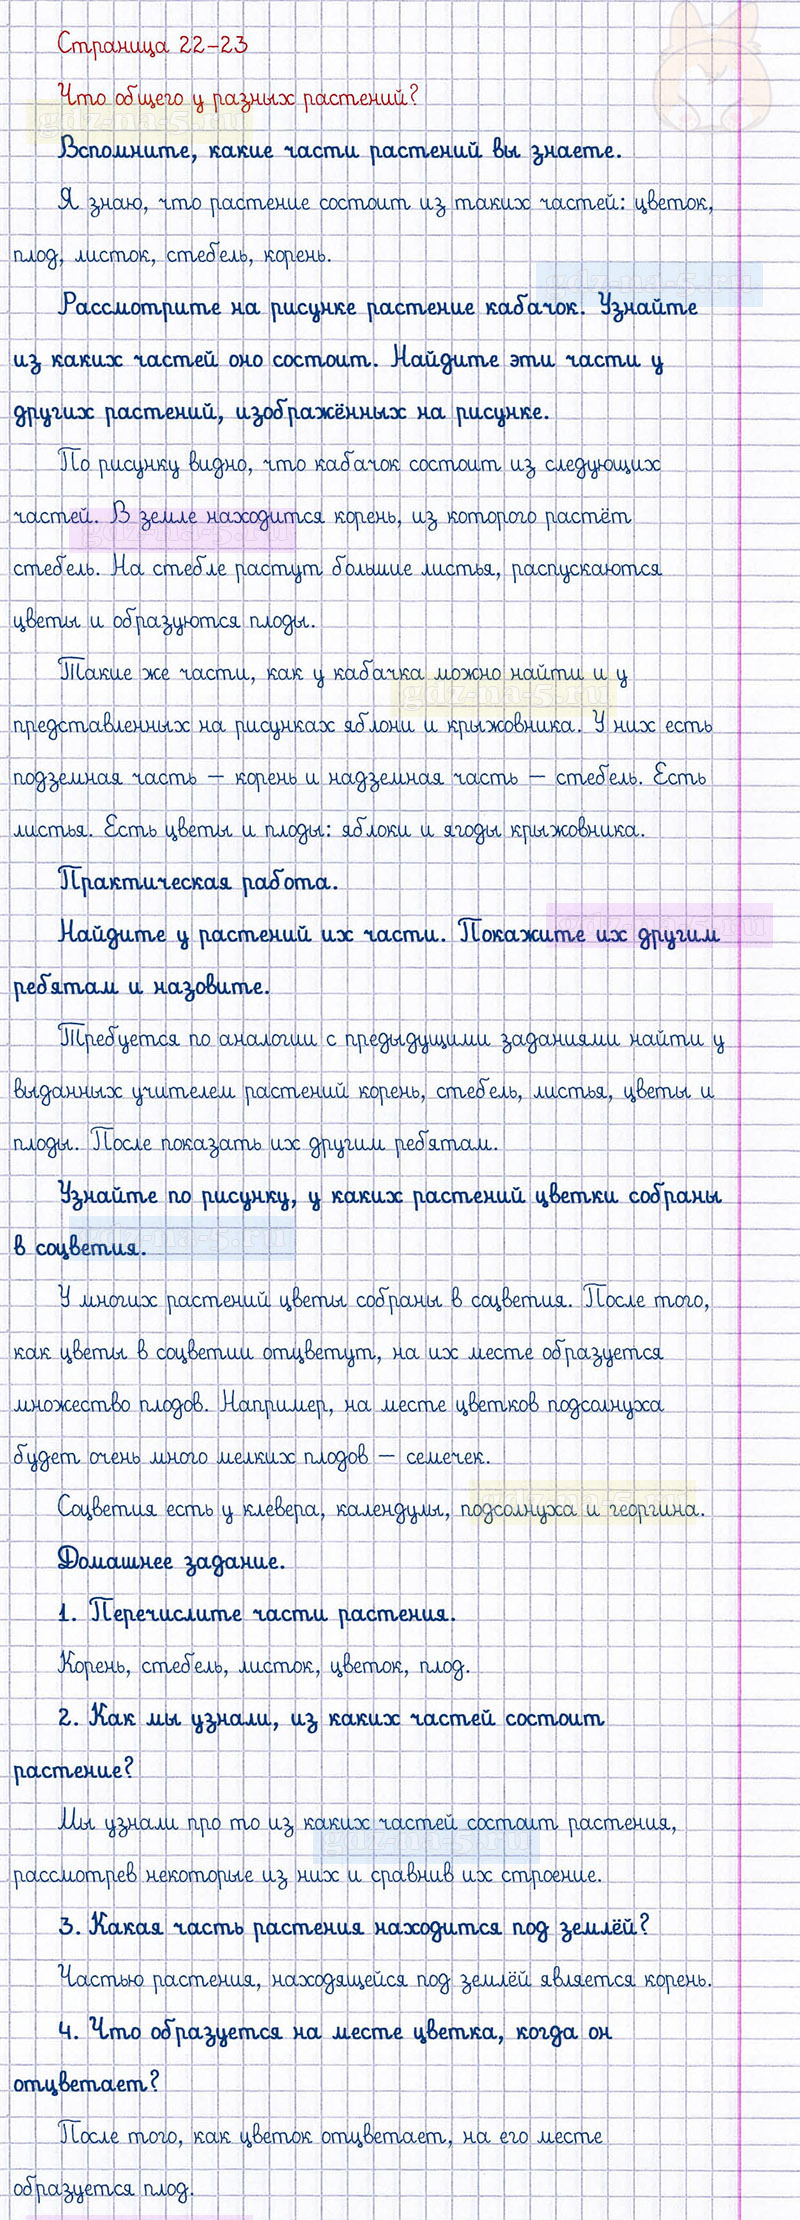 Страница 22-23
Что общего у разных растений?
gdz-na-5.ru
Вспомните, какие части растений вы знаете.
Я знаю, что растение состоит из таких частей: цветок,
плод, листок, стебель, корень.
gdz-na-5.ru
Рассмотрите на рисунке растение кабачок. Узнайте
из каких частей оно состоит. Найдите эти части у
других растений, изображённых на рисунке.
По рисунку видно, что кабачок состоит из следующих
частей. В земле находится корень, из которого растёт
gdz-na-5.ru
стебель. На стебле растут большие листья, распускаются
цветы и образуются плоды.
Такие же части, как у кабачка можно найти и у
gdz-na-5.ru
представленных на рисунках яблони и крыжовника. У них есть
подземная часть – корень и надземная часть – стебель. Есть
листья. Есть цветы и плоды: яблоки и ягоды крыжовника.
Практическая работа.
gdz-na-5.ru
Найдите у растений их части. Покажите их другим
ребятам и назовите.
Требуется по аналогии с предыдущими заданиями найти у
выданных учителем растений корень, стебель, листья, цветы и
плоды. После показать их другим ребятам.
Узнайте по рисунку, у каких растений цветки собраны
gdz-na-5.ru
в соцветия.
У многих растений цветы собраны в соцветия. После того,
как цветы в соцветии отцветут, на их месте образуется
множество плодов. Например, на месте цветков подсолнуха
будет очень много мелких плодов – семечек.
gdz-na-5.ru
Соцветия есть у клевера, календулы, подсолнуха и георгина.
Домашнее задание.
1. Перечислите части растения.
Корень, стебель, листок, цветок, плод.
2. Как мы узнали, из каких частей состоит
растение?
Мы узнали про то из каких частей состоит растения,
gdz-na-5.ru
рассмотрев некоторые из них и сравнив их строение.
3. Какая часть растения находится под землёй?
Частью растения, находящейся под землёй является корень.
4. Что образуется на месте цветка, когда он
отцветает?
После того, как цветок отцветает, на его месте
образуется плод.